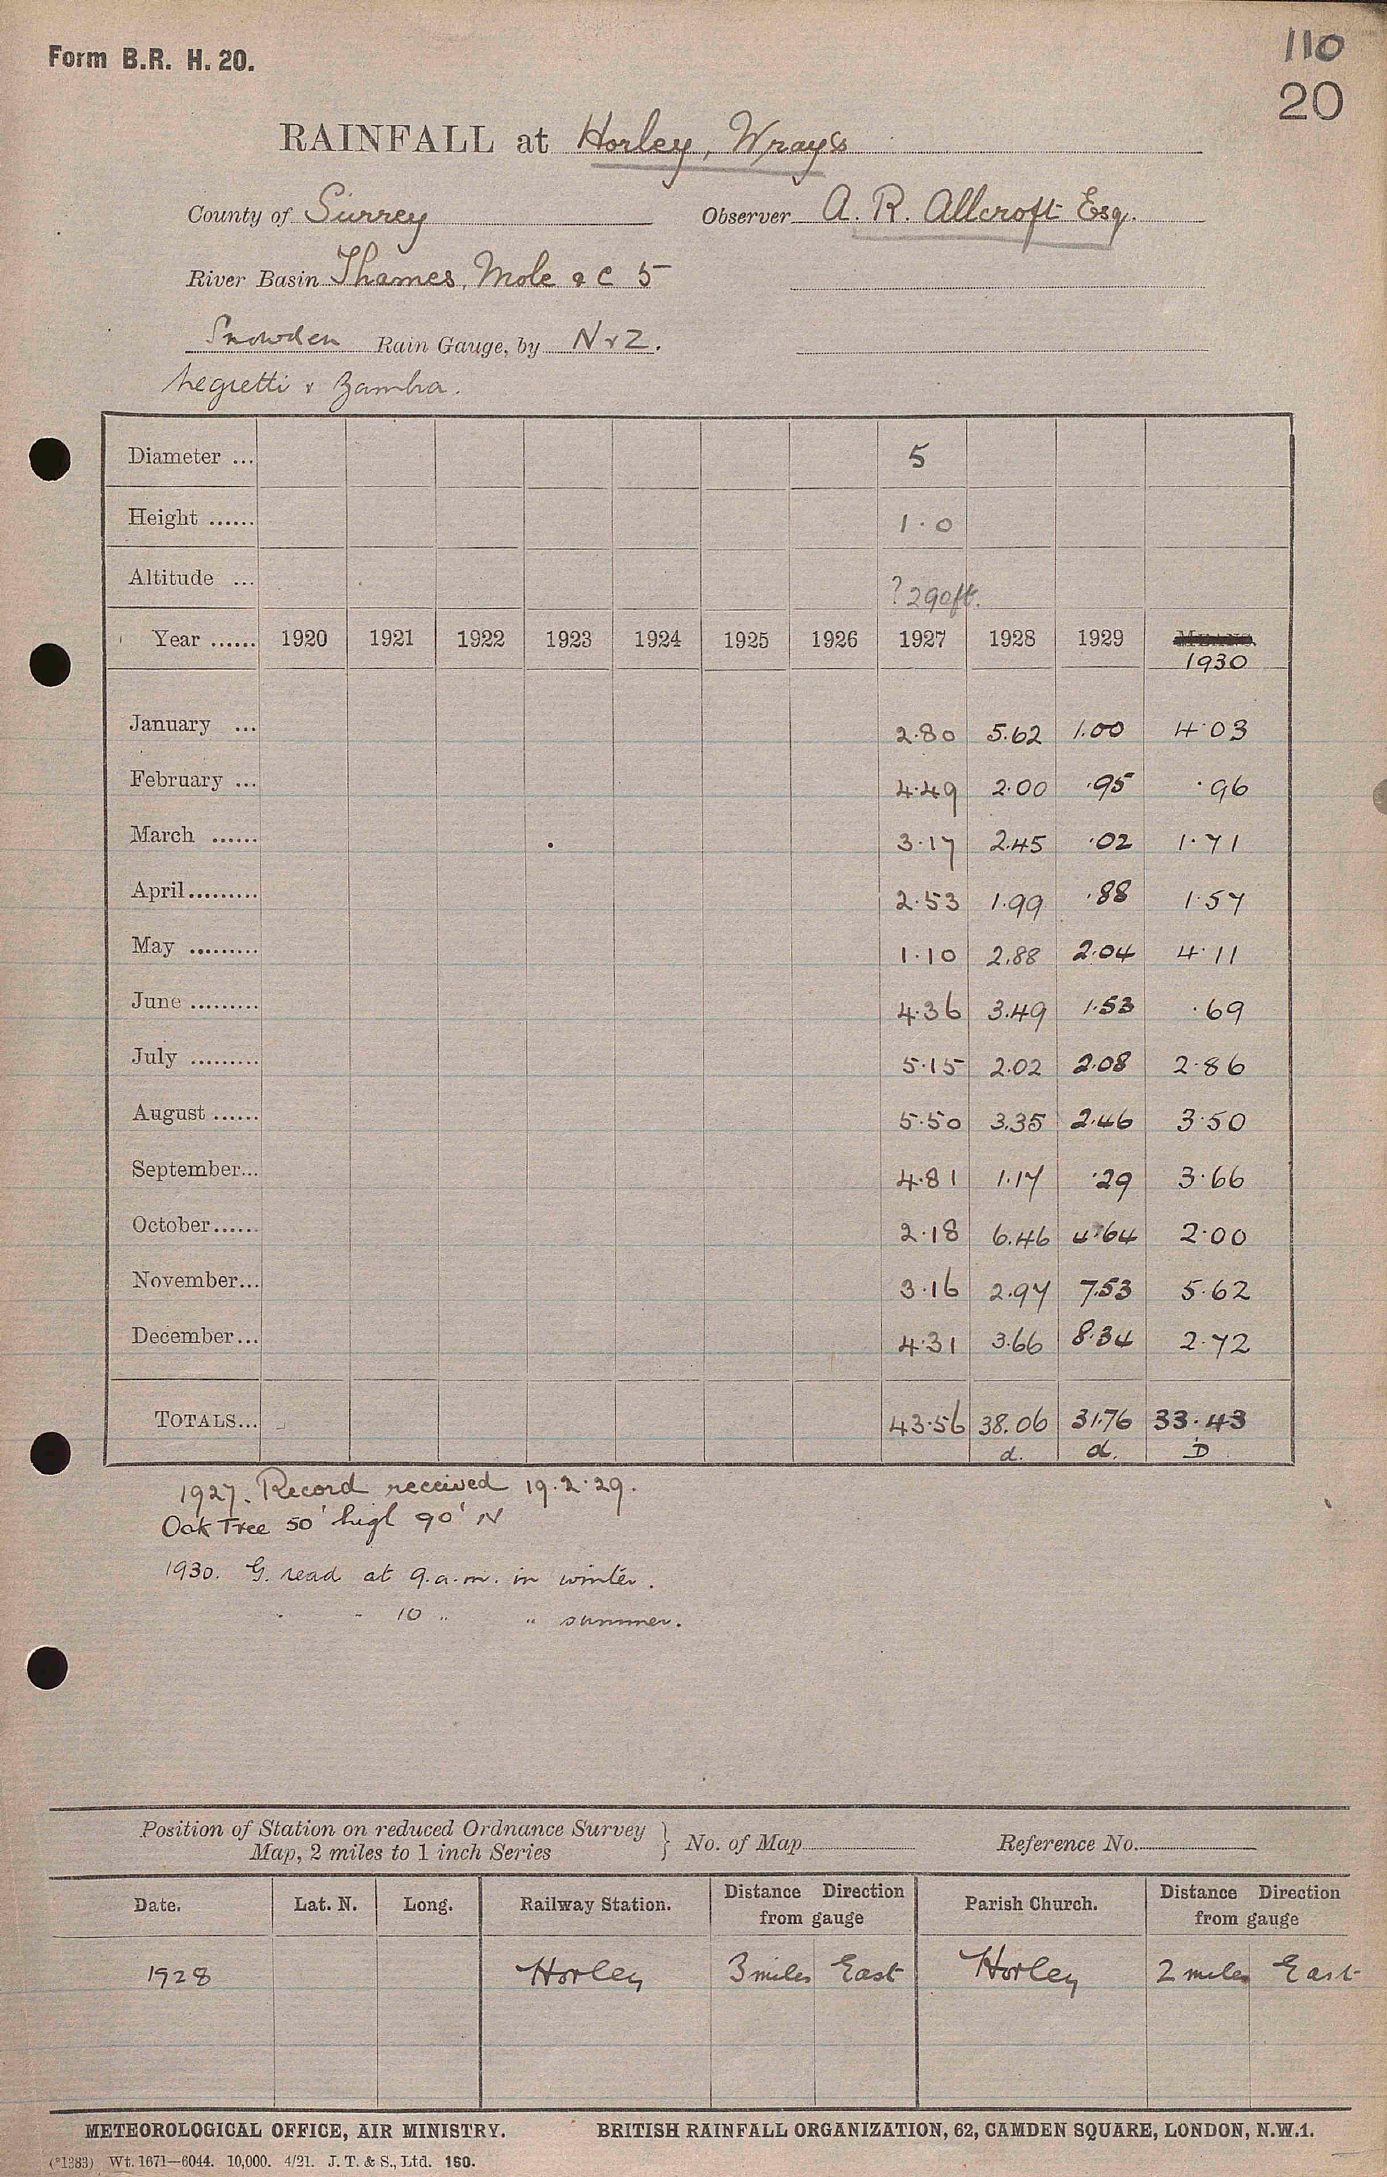 Form B.R. H. 20.
110
20
RAINFALL at Horley, Wrays
County of Surrey Observer A. R. Allcroft Esq.
River Basin Thames, Mole &c 5
Snowden Rain Gauge, by N & Z.
Negretti & Zambra.
Diameter ... 5
Height ...... 1.0
Altitude ... ? 290ft.
Year ...... 1920 1921 1922 1923 1924 1925 1926 1927 1928 1929 1930
January ... 2.80 5.62 1.00 4.03
February ... 4.49 2.00 .95 .96
March ...... 3.17 2.45 .02 1.71
April......... 2.53 1.99 .88 1.57
May ......... 1.10 2.88 2.04 4.11
June ......... 4.36 3.49 1.53 .69
July ......... 5.15 2.02 2.08 2.86
August ...... 5.50 3.35 2.46 3.50
September... 4.81 1.17 .29 3.66
October...... 2.18 6.46 4.64 2.00
November... 3.16 2.97 7.53 5.62
December... 4.31 3.66 8.34 2.72
TOTALS... 43.56 38.06 31.76 33.43
d. d. D
1927. Record received 19.2.29.
Oak Tree 50' high 90' N
1930. G. read at 9.a.m. in winter.
" " 10 " " summer.
Position of Station on reduced Ordnance Survey
Map, 2 miles to 1 inch Series } No. of Map Reference No.
Date. Lat. N. Long. Railway Station. Distance Direction from gauge Parish Church. Distance Direction from gauge
1928 Horley 3 miles East Horley 2 miles East
METEOROLOGICAL OFFICE, AIR MINISTRY. BRITISH RAINFALL ORGANIZATION, 62, CAMDEN SQUARE, LONDON, N.W.1.
(*1383) Wt. 1671—6044. 10,000. 4/21. J. T. & S., Ltd. 150.